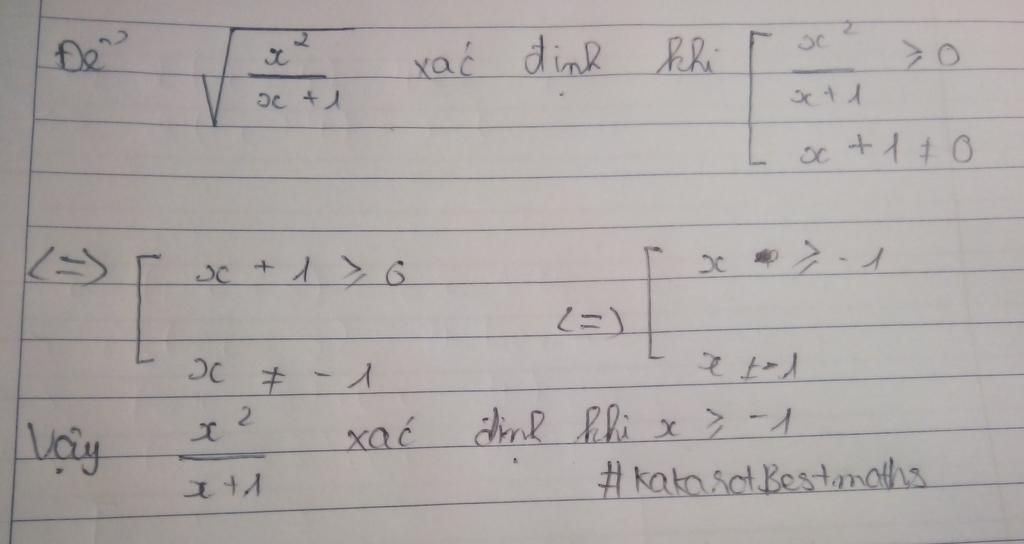 Để √(x²/(x+1)) xác định khi [ x²/(x+1) ≥ 0
x + 1 ≠ 0
<=> [ x + 1 ≥ 0 <=> [ x ≥ -1
x ≠ -1 x ≠ -1
Vậy x²/(x+1) xác định khi x ≥ -1
#KakarotBestmaths